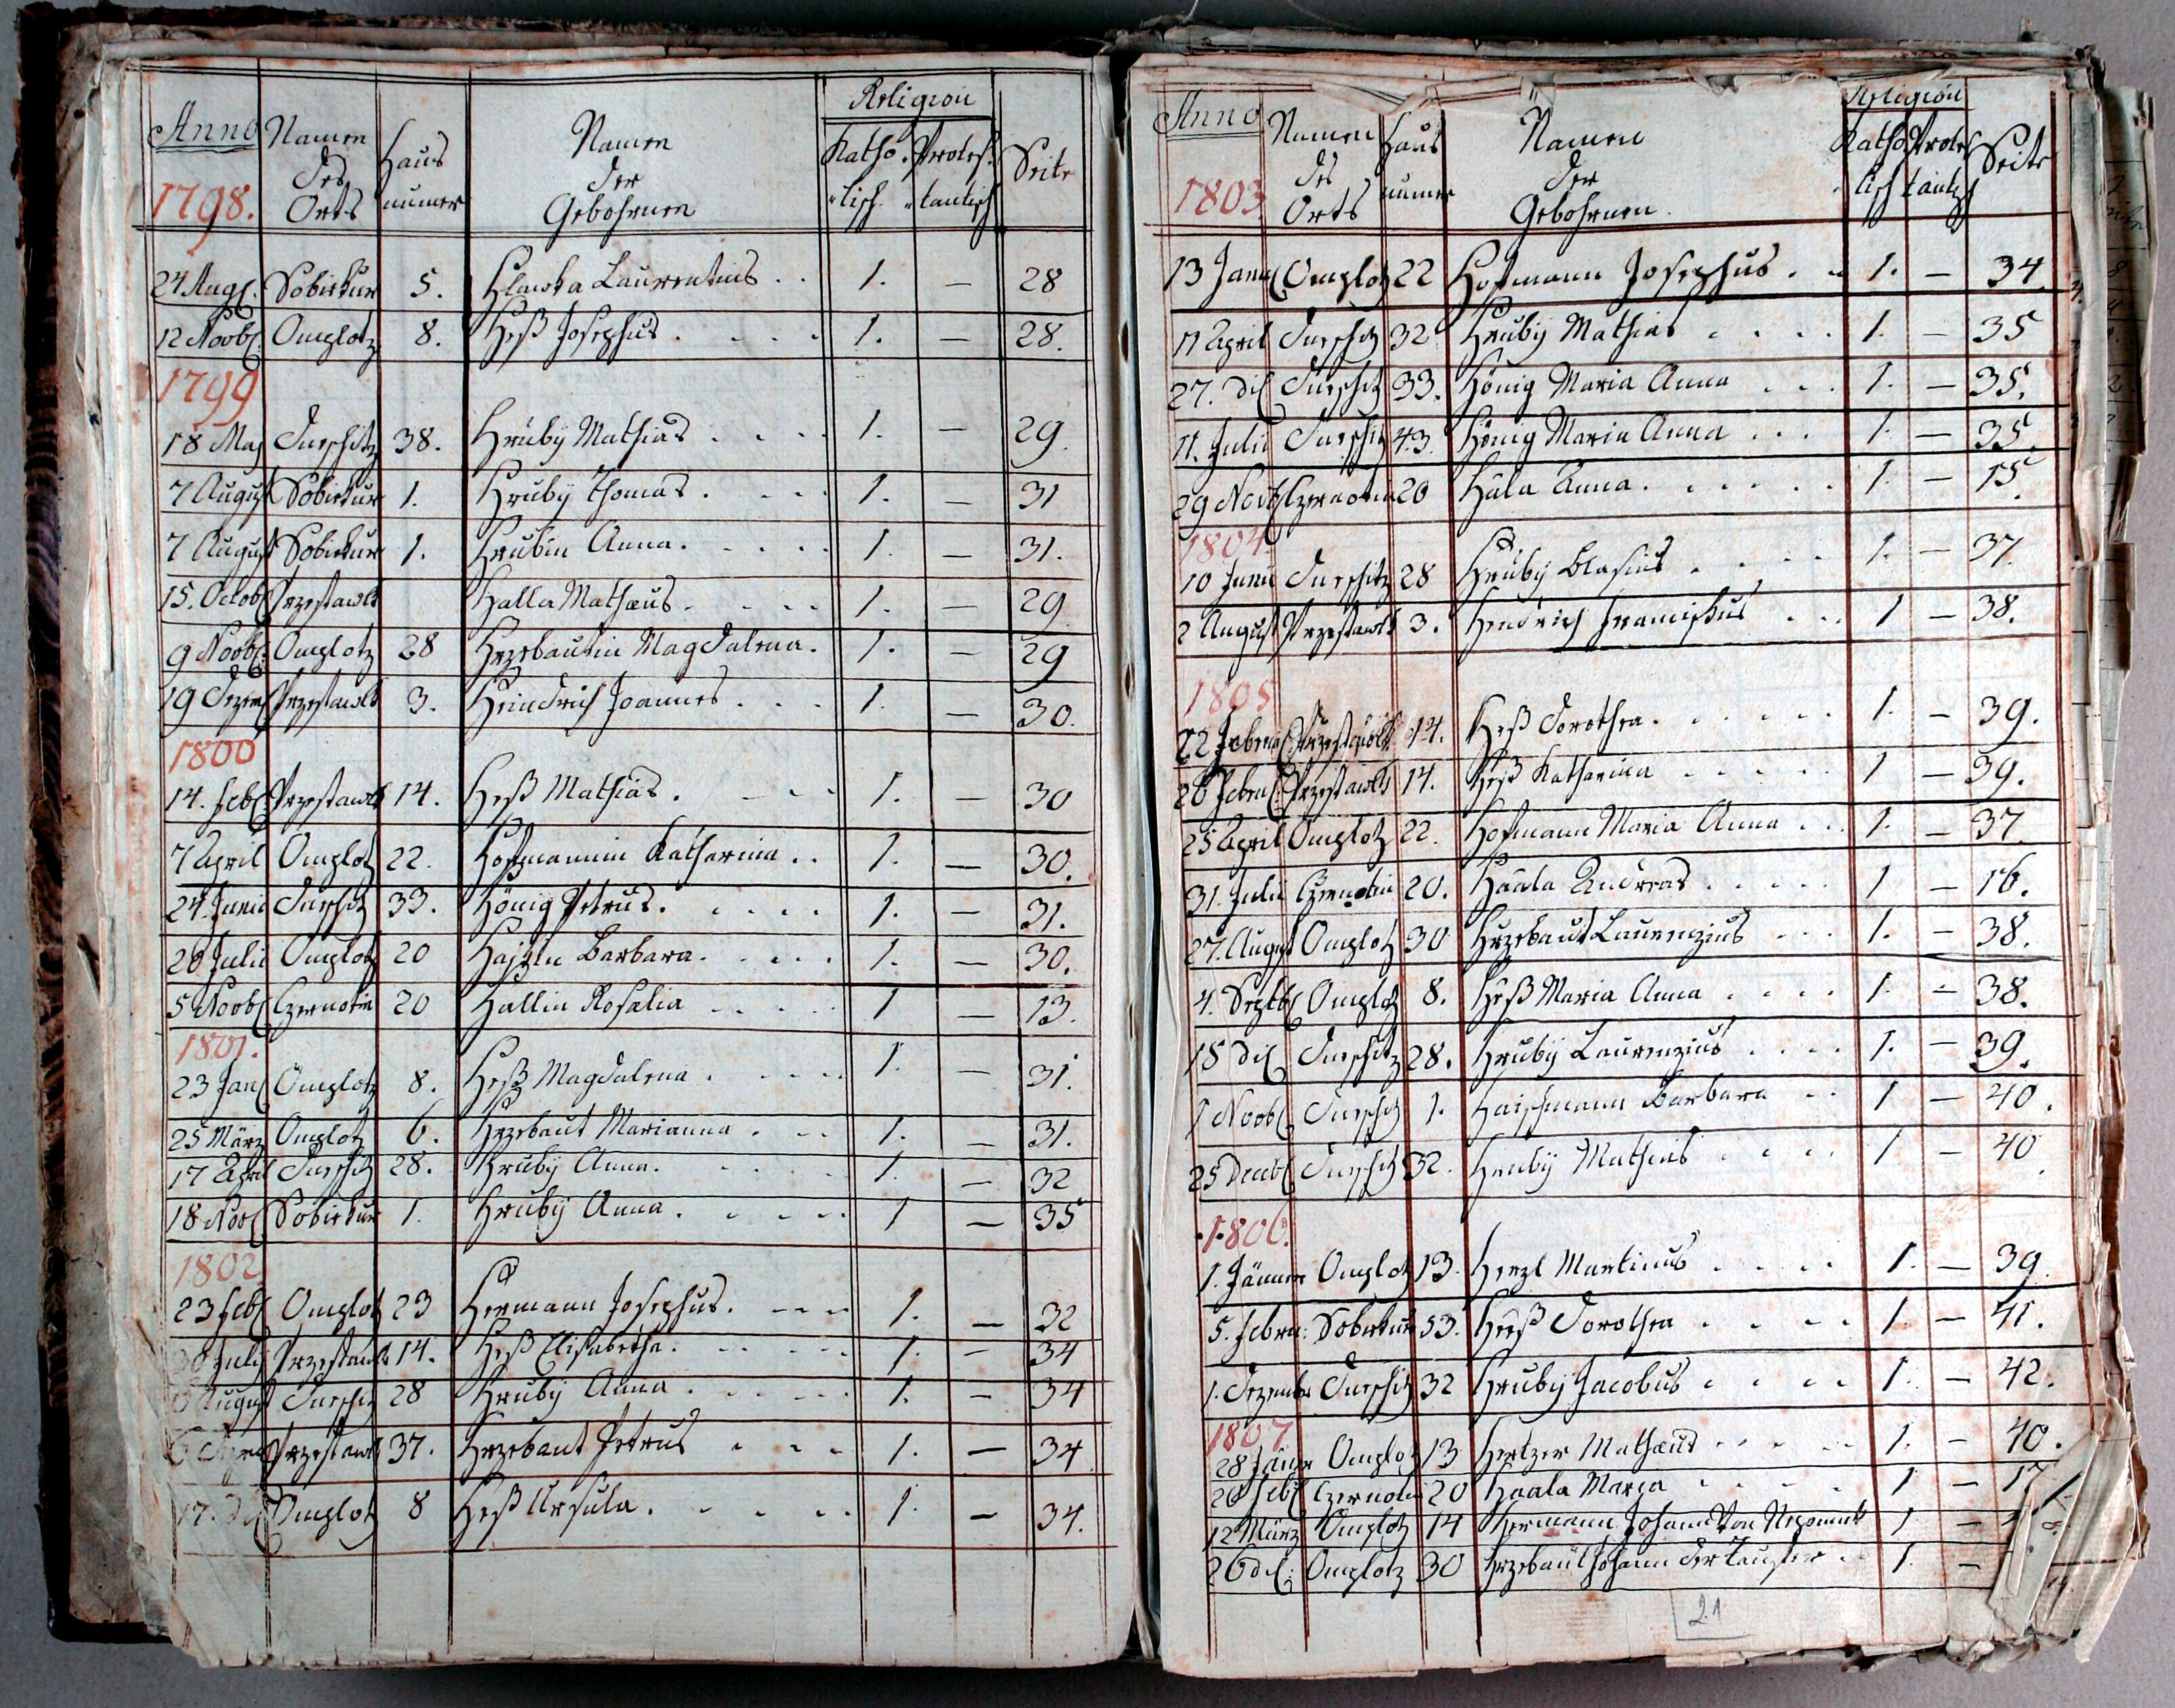 Anno 1798. | Namen des Orts | Haus numer | Namen der Gebohrnen | Religion Katho„lisch. Protes„tantisch | Seite
24 Aug. Sobiekur 5. Hlawka Laurentius . . 1. — 28
12 Novb. Omplotz 8. Heß Josephus . . . . 1. — 28.
1799
18 Maj Turschitz 38. Hruby Mathias . . . . 1. — 29.
7 August Sobiekur 1. Hruby Thomas . . . . 1. — 31
7 August Sobiekur 1. Hrubin Anna . . . . . 1. — 31.
15. Octob Przestawlk Halla Mathæus . . . . 1. — 29
9 Novb: Omplotz 28 Hrzebautin Magdalena . 1. — 29
19 Dezem Przestawlk 3. Heindrich Joannes . . . 1. — 30.
1800
14. Feb. Przestawlk 14. Heß Mathias . . . . 1. — 30
7 April Omplotz 22. Hoffmannin Katharina . . 1. — 30.
24. Junii Turschitz 33. König Petrus . . . . . 1. — 31.
20 Julii Omplotz 20 Barbara . . . . 1. — 30.
5 Novb Czernotin 20 Hallin Rosalia . . . . . 1 — 13.
1801.
23 Jan Omplotz 8. Heß Magdalena . . . . . 1. — 31.
25 März Omplotz 6. Hrzebaut Marianna . . . 1. — 31.
17 April Turschitz 28. Hruby Anna . . . . . 1. — 32
18 Nov Sobiekur 1. Hruby Anna . . . . . 1 — 35
1802
23 Feb Omplotz 23 Hermann Josephus . . . . 1. — 32
Juli Przestawlk 14. Heß Elisabetha . . . . . 1. — 34
August Turschitz 28 Hruby Anna . . . . . 1. — 34
Przestawlk 37. Hrzebaut Petrus . . . 1. — 34
17. Omplotz 8 Heß Ursula . . . . . 1. — 34.
Anno 1803 | Namen des Orts | Haus numer | Namen der Gebohrnen. | Religion Katholisch Protestantis | Seite
13 Januar Omplotz 22 Hofmann Josephus . . 1. — 34.
11 April Turschitz 32. Hruby Mathias . . . . 1. — 35
27. di Turschitz 33. König Maria Anna . . . 1. — 35.
11. Julii Turschitz 43. König Maria Anna . . . 1. — 35.
29 Novb Czernotin 20 Hala Anna . . . . . . 1. — 15.
1804.
10 Junii Turschitz 28 Hruby Blasius . . . . 1. — 37.
2 August Przestawlk 3. Hendrich Franciskus . . . 1 — 38.
1805
22 Februar Przestawlk 14. Heß Dorothea . . . . . 1. — 39.
26 Februar Przestawlk 14. Heß Katharina . . . . . 1 — 39.
25 April Omplotz 22. Hofmann Maria Anna . . . 1. — 37.
31. Julii Czernotin 20. Haala Andreas . . . . . 1 — 16.
27. August Omplotz 30 Hrzebaut Laurenzius . . . 1. — 38.
4. Septb Omplotz 8. Heß Maria Anna . . . . 1. — 38.
18 di Turschitz 28. Hruby Laurenzius . . . . 1. — 39.
1 Novb Turschitz 1. Haischmann Barbara . . 1 — 40.
25 Decb Turschitz 32. Hruby Mathias . . . . 1 — 40.
1806.
1. Jänner Omplotz 13. Herzl Martinus . . . . 1. — 39.
5. Februar: Sobiekur 53. Heeß Dorothea . . . . 1. — 41.
1. Dezember Turschitz 32 Hruby Jacobus . . . . 1. — 42.
1807
28 Jäner Omplotz 13 Hertzer Mathæus . . . . 1. — 40.
20 Feb Czernotin 20 Haala Marza . . . . . 1 — 17
12 März Omplotz 14 Hermann Johann Von Nepomuk 1 —
26 di: Omplotz 30 Hrzebaut Johann Der Taufer . . 1. —
21